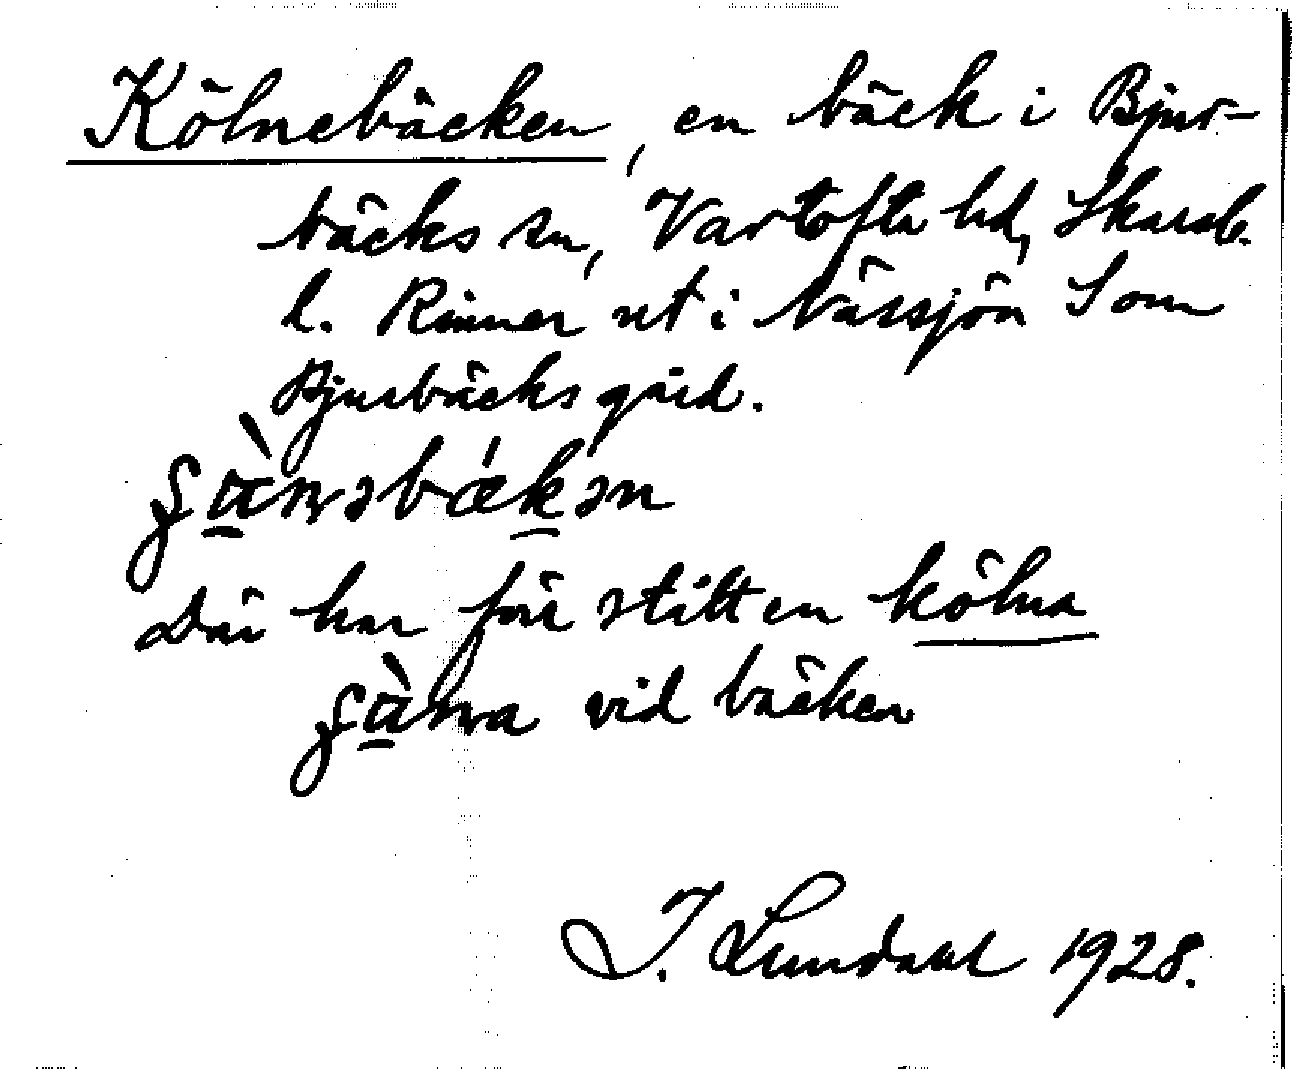 Kölnebäcken, en bäck i Bjur-
bäcks sn, Vartofta hd, Skarab.
l. Rinner ut i Nässjön som
Bjurbäcksgård.
bäkən
Där har förr stått en kölna
vid bäcken
I. Lundahl 1928.